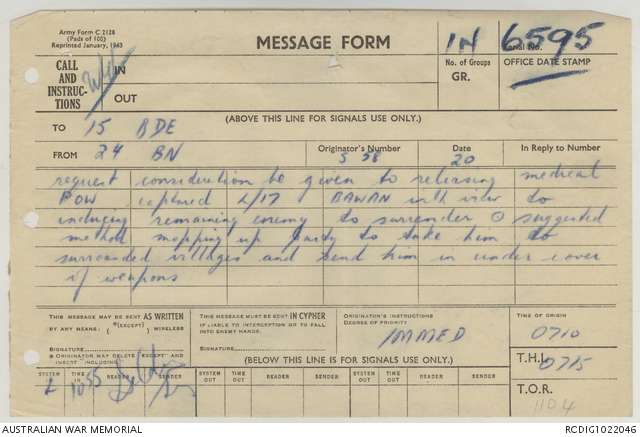 Army Form C 2128
(Pads of 100)
Reprinted January, 1943
MESSAGE FORM
IN 6595
Serial No.
No. of Groups
GR.
OFFICE DATE STAMP
CALL
AND
INSTRUC-
TIONS
IN
OUT
(ABOVE THIS LINE FOR SIGNALS USE ONLY.)
TO 15 BDE
FROM 24 BN
Originator's Number
S 58
Date
20
In Reply to Number
request consideration be given to releasing medical
POW captured L/17 BAWAN with view to
inducing remaining enemy to surrender ⊙ suggested
method mopping up party to take him to
surrounded villages and send him in under cover
of weapons
THIS MESSAGE MAY BE SENT AS WRITTEN
BY ANY MEANS: (*(EXCEPT) ) WIRELESS
SIGNATURE
ORIGINATOR MAY DELETE (EXCEPT) AND
INSERT (INCLUDING)
THIS MESSAGE MUST BE SENT IN CYPHER
IF LIABLE TO INTERCEPTION OR TO FALL
INTO ENEMY HANDS.
SIGNATURE
ORIGINATOR'S INSTRUCTIONS
DEGREE OF PRIORITY
IMMED
TIME OF ORIGIN
0710
T.H.I.
0715
T.O.R.
1104
(BELOW THIS LINE IS FOR SIGNALS USE ONLY.)
SYSTEM TIME IN READER SENDER SYSTEM OUT TIME OUT READER SENDER SYSTEM OUT TIME OUT READER SENDER
L 1055
AUSTRALIAN WAR MEMORIAL
RCDIG1022046